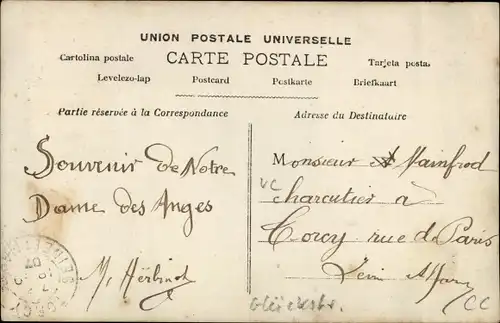 UNION POSTALE UNIVERSELLE
CARTE POSTALE
Cartolina postale
Tarjeta postal
Levelezo-lap Postcard Postkarte Briefkaart
Partie réservée à la Correspondance
Adresse du Destinataire
Souvenir de Notre
Dame des Anges
Monsieur Mainfrod
charcutier à
rue de Paris
CC